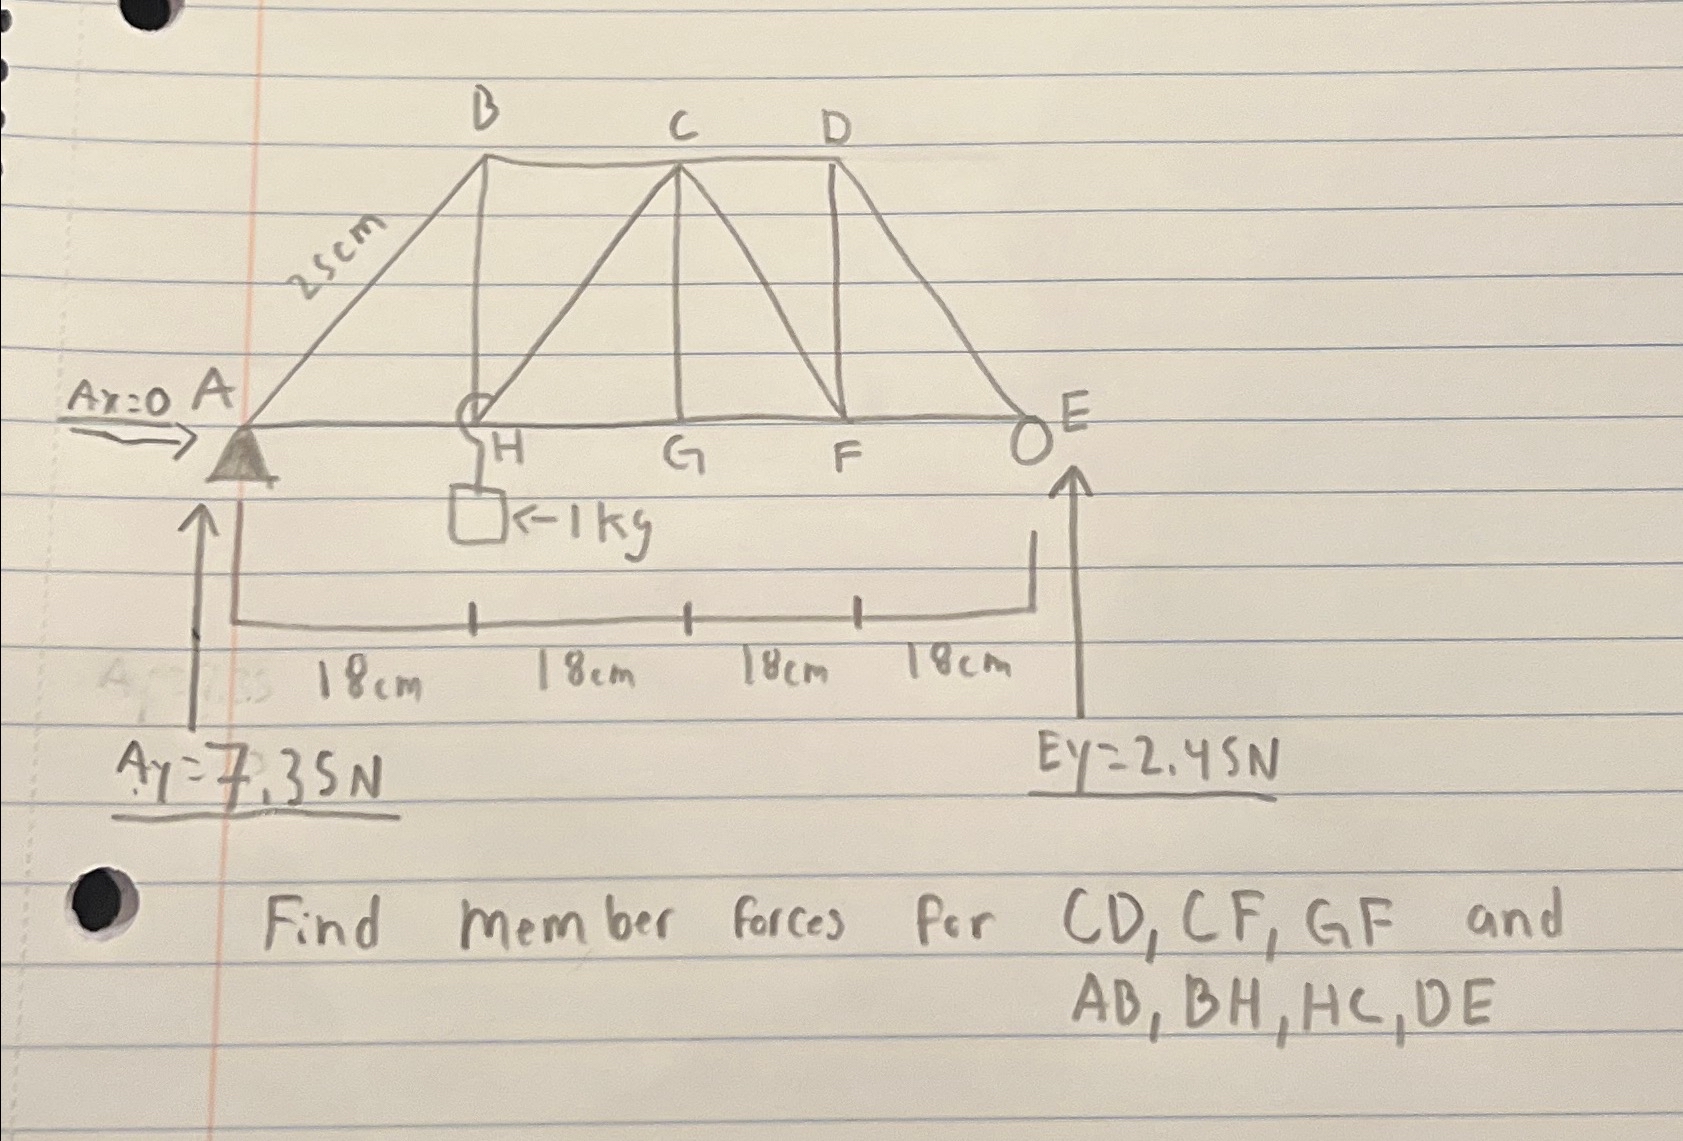 B C D
25cm
Ax=0 A E
H G F
←1kg
18cm 18cm 18cm 18cm
Ay=7.35N Ey=2.45N
Find member forces for CD, CF, GF and
AB, BH, HC, DE